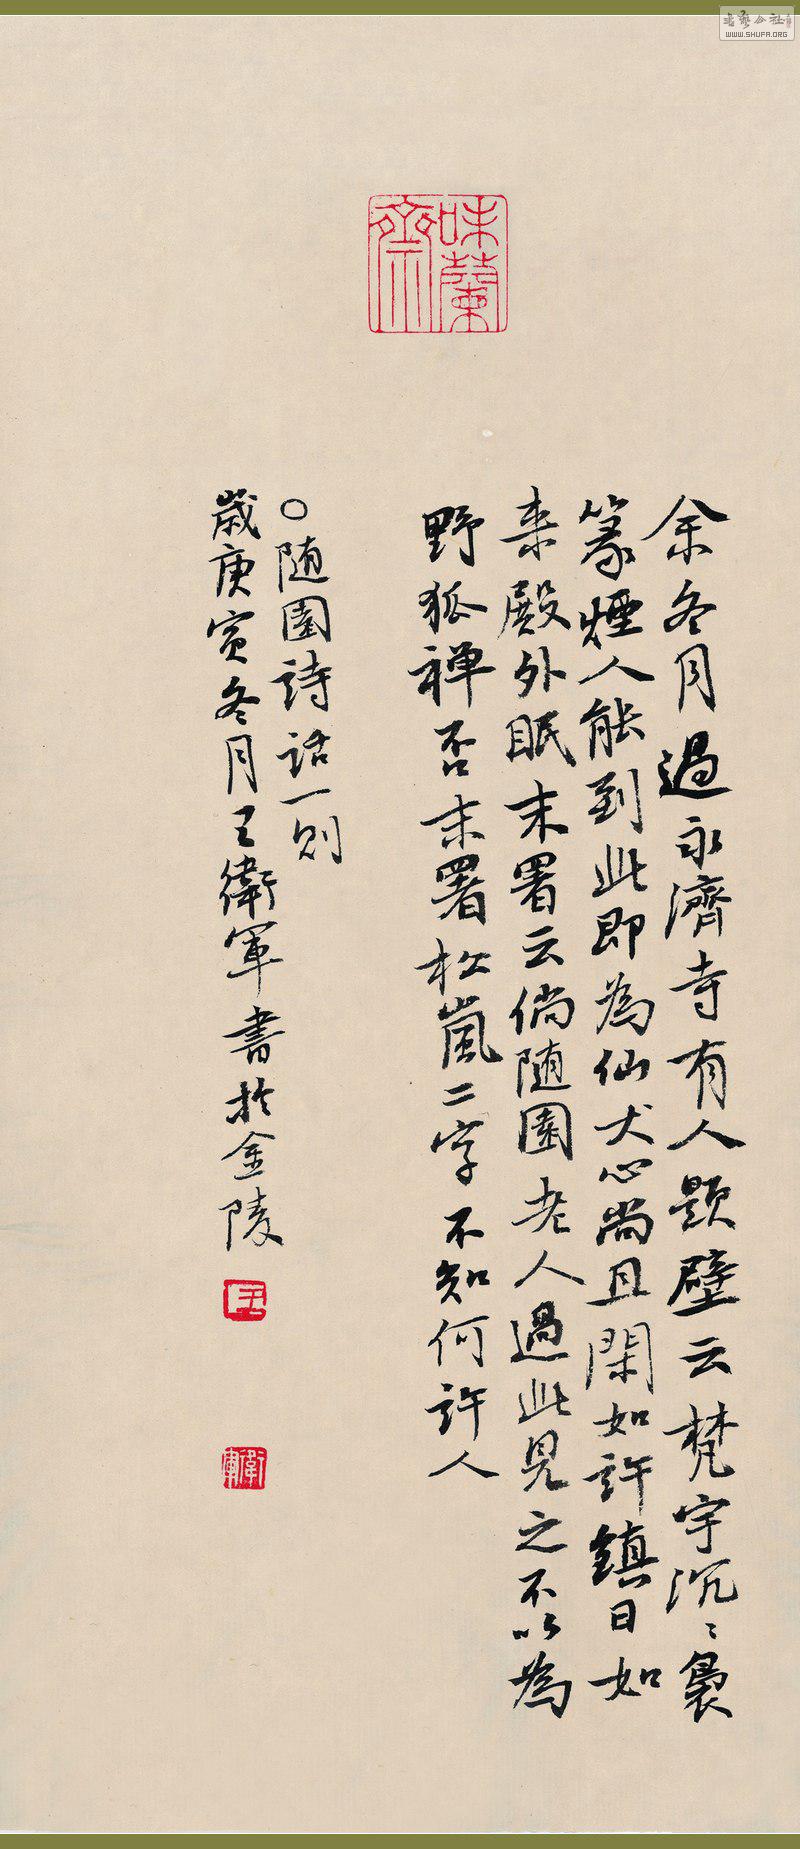 余冬月過永濟寺有人題壁云梵宇沉〻裊
篆煙人能到此即為仙犬心尚且閑如許鎮日如
來殿外眠末署云倘随園老人過此見之不以為
野狐禅否末署松嵐二字不知何許人
○随園詩話一則
歲庚寅冬月王衛軍書於金陵
味蘭齋
王
衛軍
書藝公社
www.SHUFA.ORG